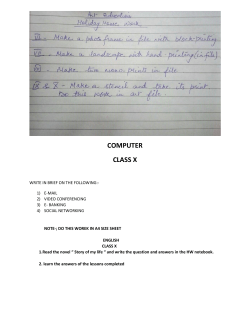 Art Education
Holiday Home Work
VI - Make a photo frame in file with block printing
VII - Make a landscape with hand printing (in file)
- Make two prints in file
IX & X - Make a stencil and take its print
Do this work in art file
COMPUTER
CLASS X
WRITE IN BRIEF ON THE FOLLOWING:-
1) E-MAIL
2) VIDEO CONFERENCING
3) E- BANKING
4) SOCIAL NETWORKING
NOTE-; DO THIS WOREK IN A4 SIZE SHEET
ENGLISH
CLASS X
1.Read the novel " Story of my life " and write the question and answers in the HW notebook.
2. learn the answers of the lessons completed